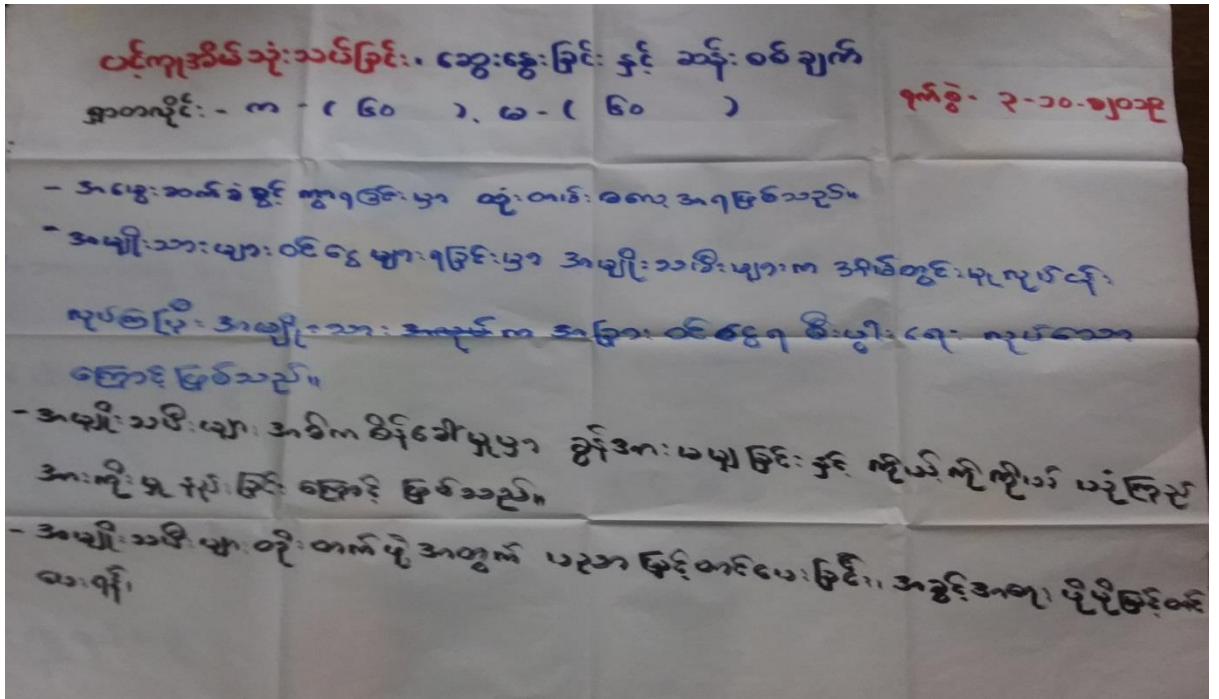 ပင့်ကူအိမ်သုံးသပ်ခြင်း၊ ဆွေးနွေးခြင်း နှင့် ဆန်းစစ်ချက်
ရွာတလိုင်း - က - ( ၆၀ ), မ - ( ၆၀ )
ရက်စွဲ - ၃-၁၀-၂၀၁၉
- အမွေဆက်ခံခွင့် ကွာရခြင်းမှာ ထုံးတမ်းဓလေ့အရဖြစ်သည်။
- အမျိုးသားများ ဝင်ငွေများရခြင်းမှာ အမျိုးသမီးများက အိမ်တွင်းမှုလုပ်ငန်း
လုပ်ကြပြီး အမျိုးသား က အခြား ဝင်ငွေရ စီးပွါးရေး လုပ်သော
ကြောင့်ဖြစ်သည်။
- အမျိုးသမီးများ အဓိကစိန်ခေါ်မှုမှာ ခွန်အားမမျှခြင်း နှင့် ကိုယ့်ကိုကိုယ် ယုံကြည်
အားကိုးမှု နည်းခြင်းကြောင့် ဖြစ်သည်။
- အမျိုးသမီးများ တိုးတက်ဖို့အတွက် ပညာမြှင့်တင်ပေးခြင်း၊ အခွင့်အရေး ပိုမိုမြှင့်တင်
ပေးရန်၊